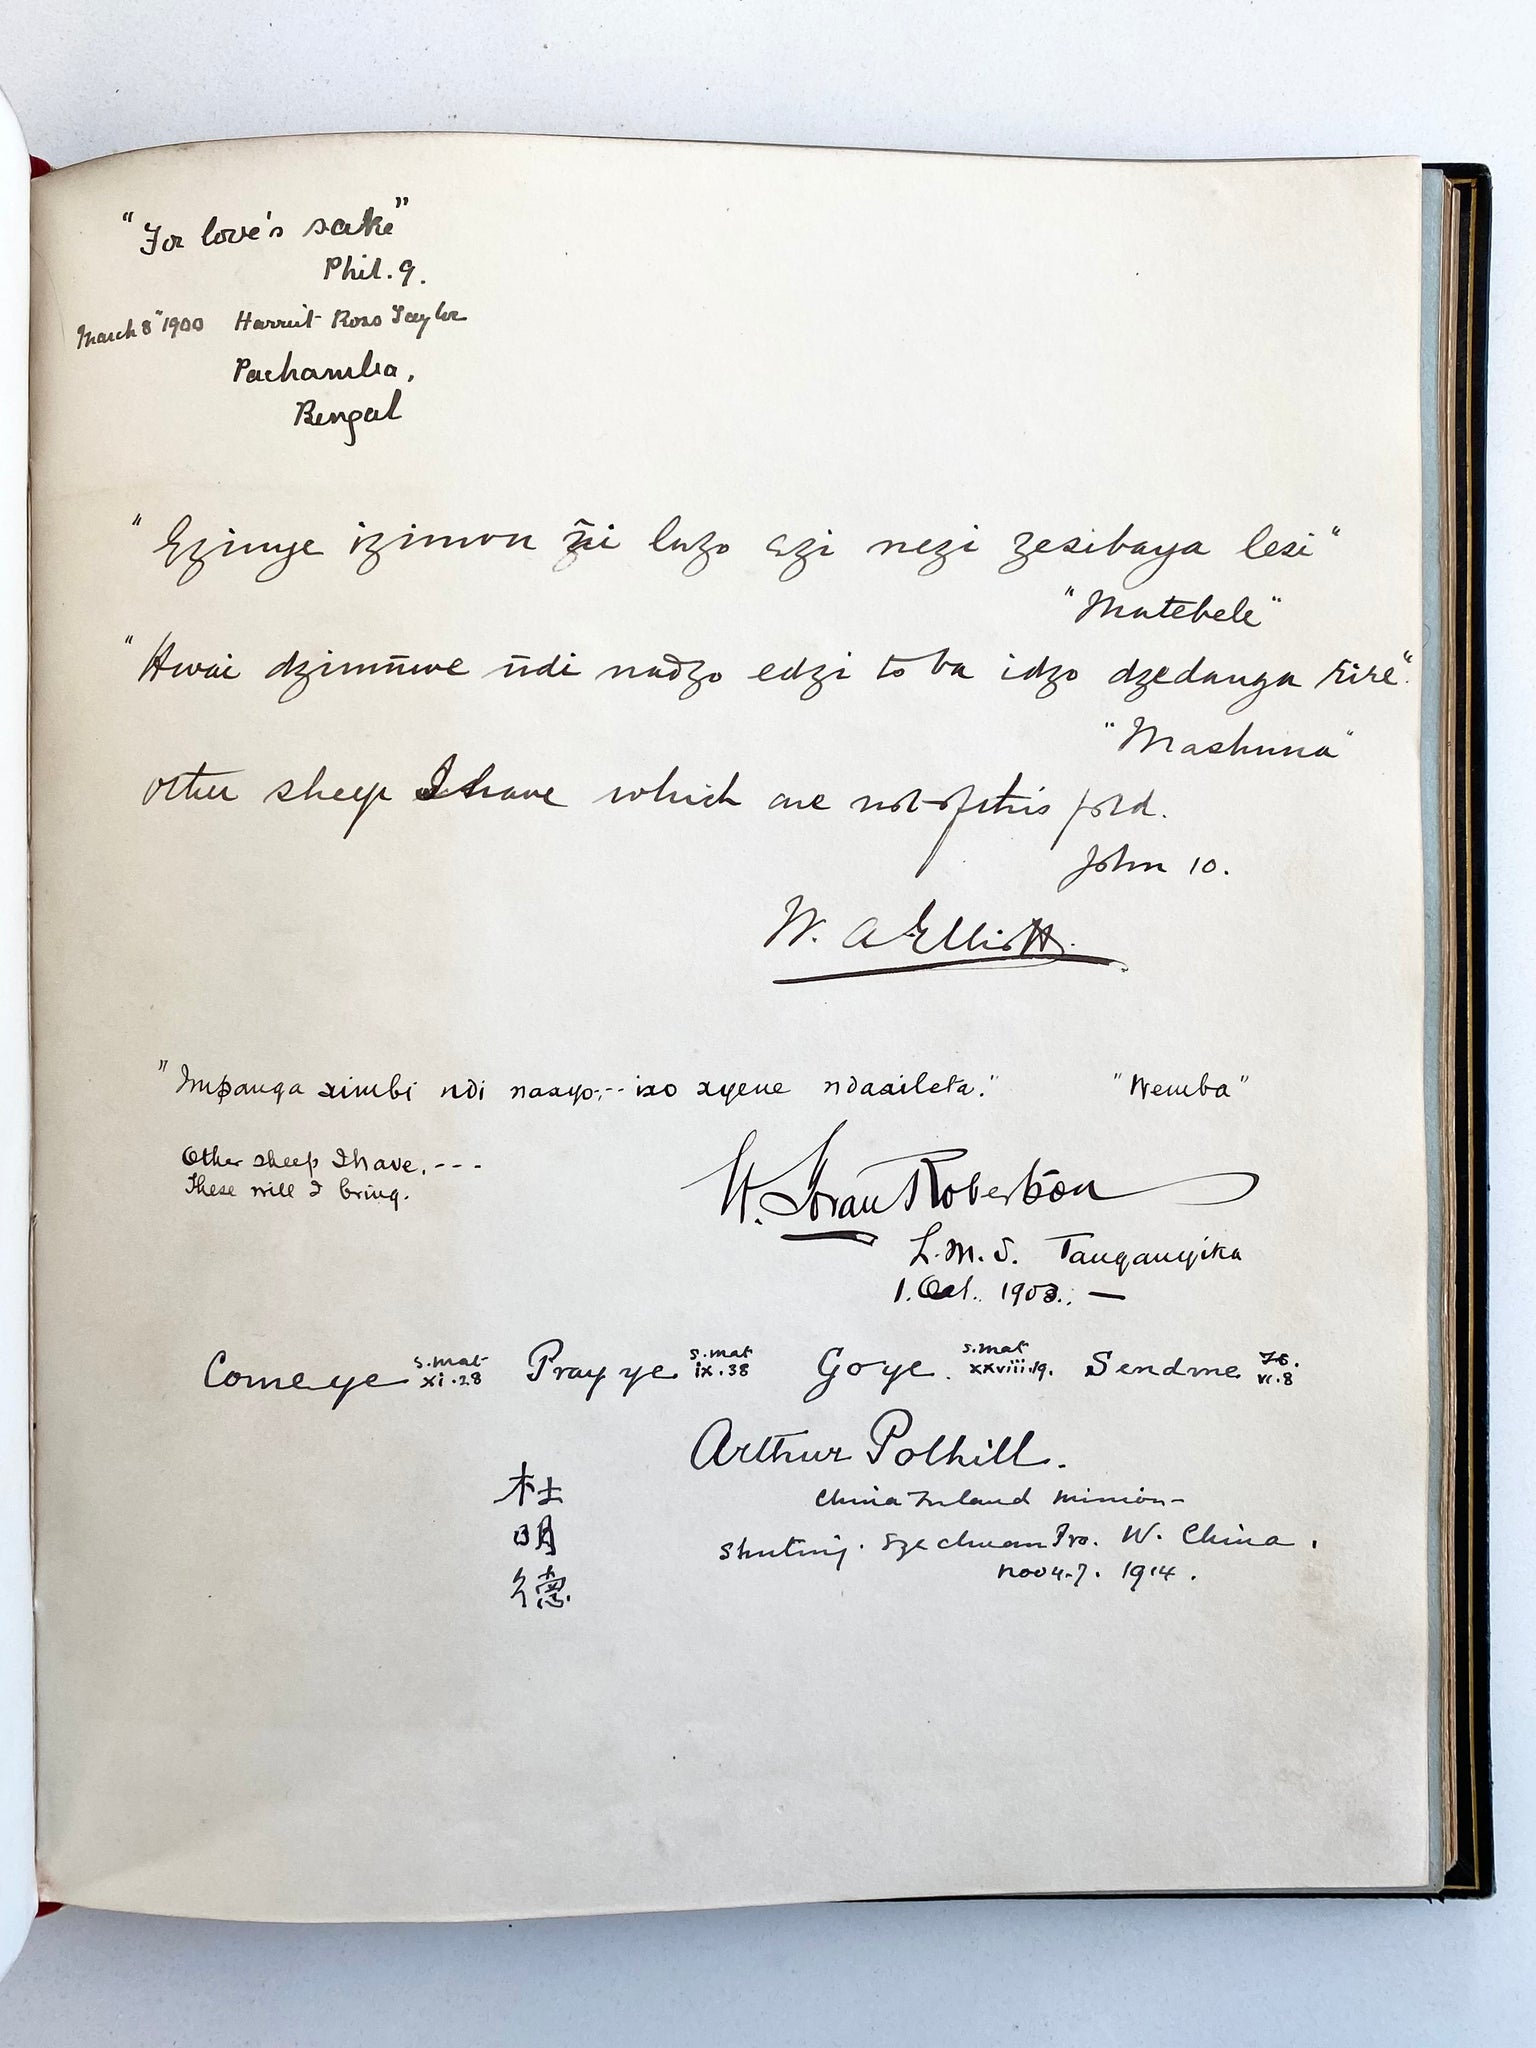 "For love's sake"
Phil. 9.
March 8" 1900 Harriet Ross Taylor
Pachamba,
Bengal
"Ezinye izimvu ñi lazo azi nezi zesibaya lesi"
"Matebele"
"Hwai dzimñwe ñdi nadzo edzi to ba idzo dzedanga rire".
"Mashuna"
other sheep I have which are not of this fold.
John 10.
W. A Elliott.
"Impanga ximbi ndi naxyo;--- ixo xyene ndaxileta." "Wemba"
Other sheep I have, ---
These will I bring.
W. Govan Robertson
L.M.S. Tanganyika
1. Oct. 1903. —
Come ye S. Mat xi.28 Pray ye S. Mat ix.38 Go ye. S. Mat xxviii.19. Send me Is. vi.8
Arthur Polhill.
China Inland Mission-
杜
明
德
Shuting. Szechuan Pro. W. China.
Nov 4-7. 1914.